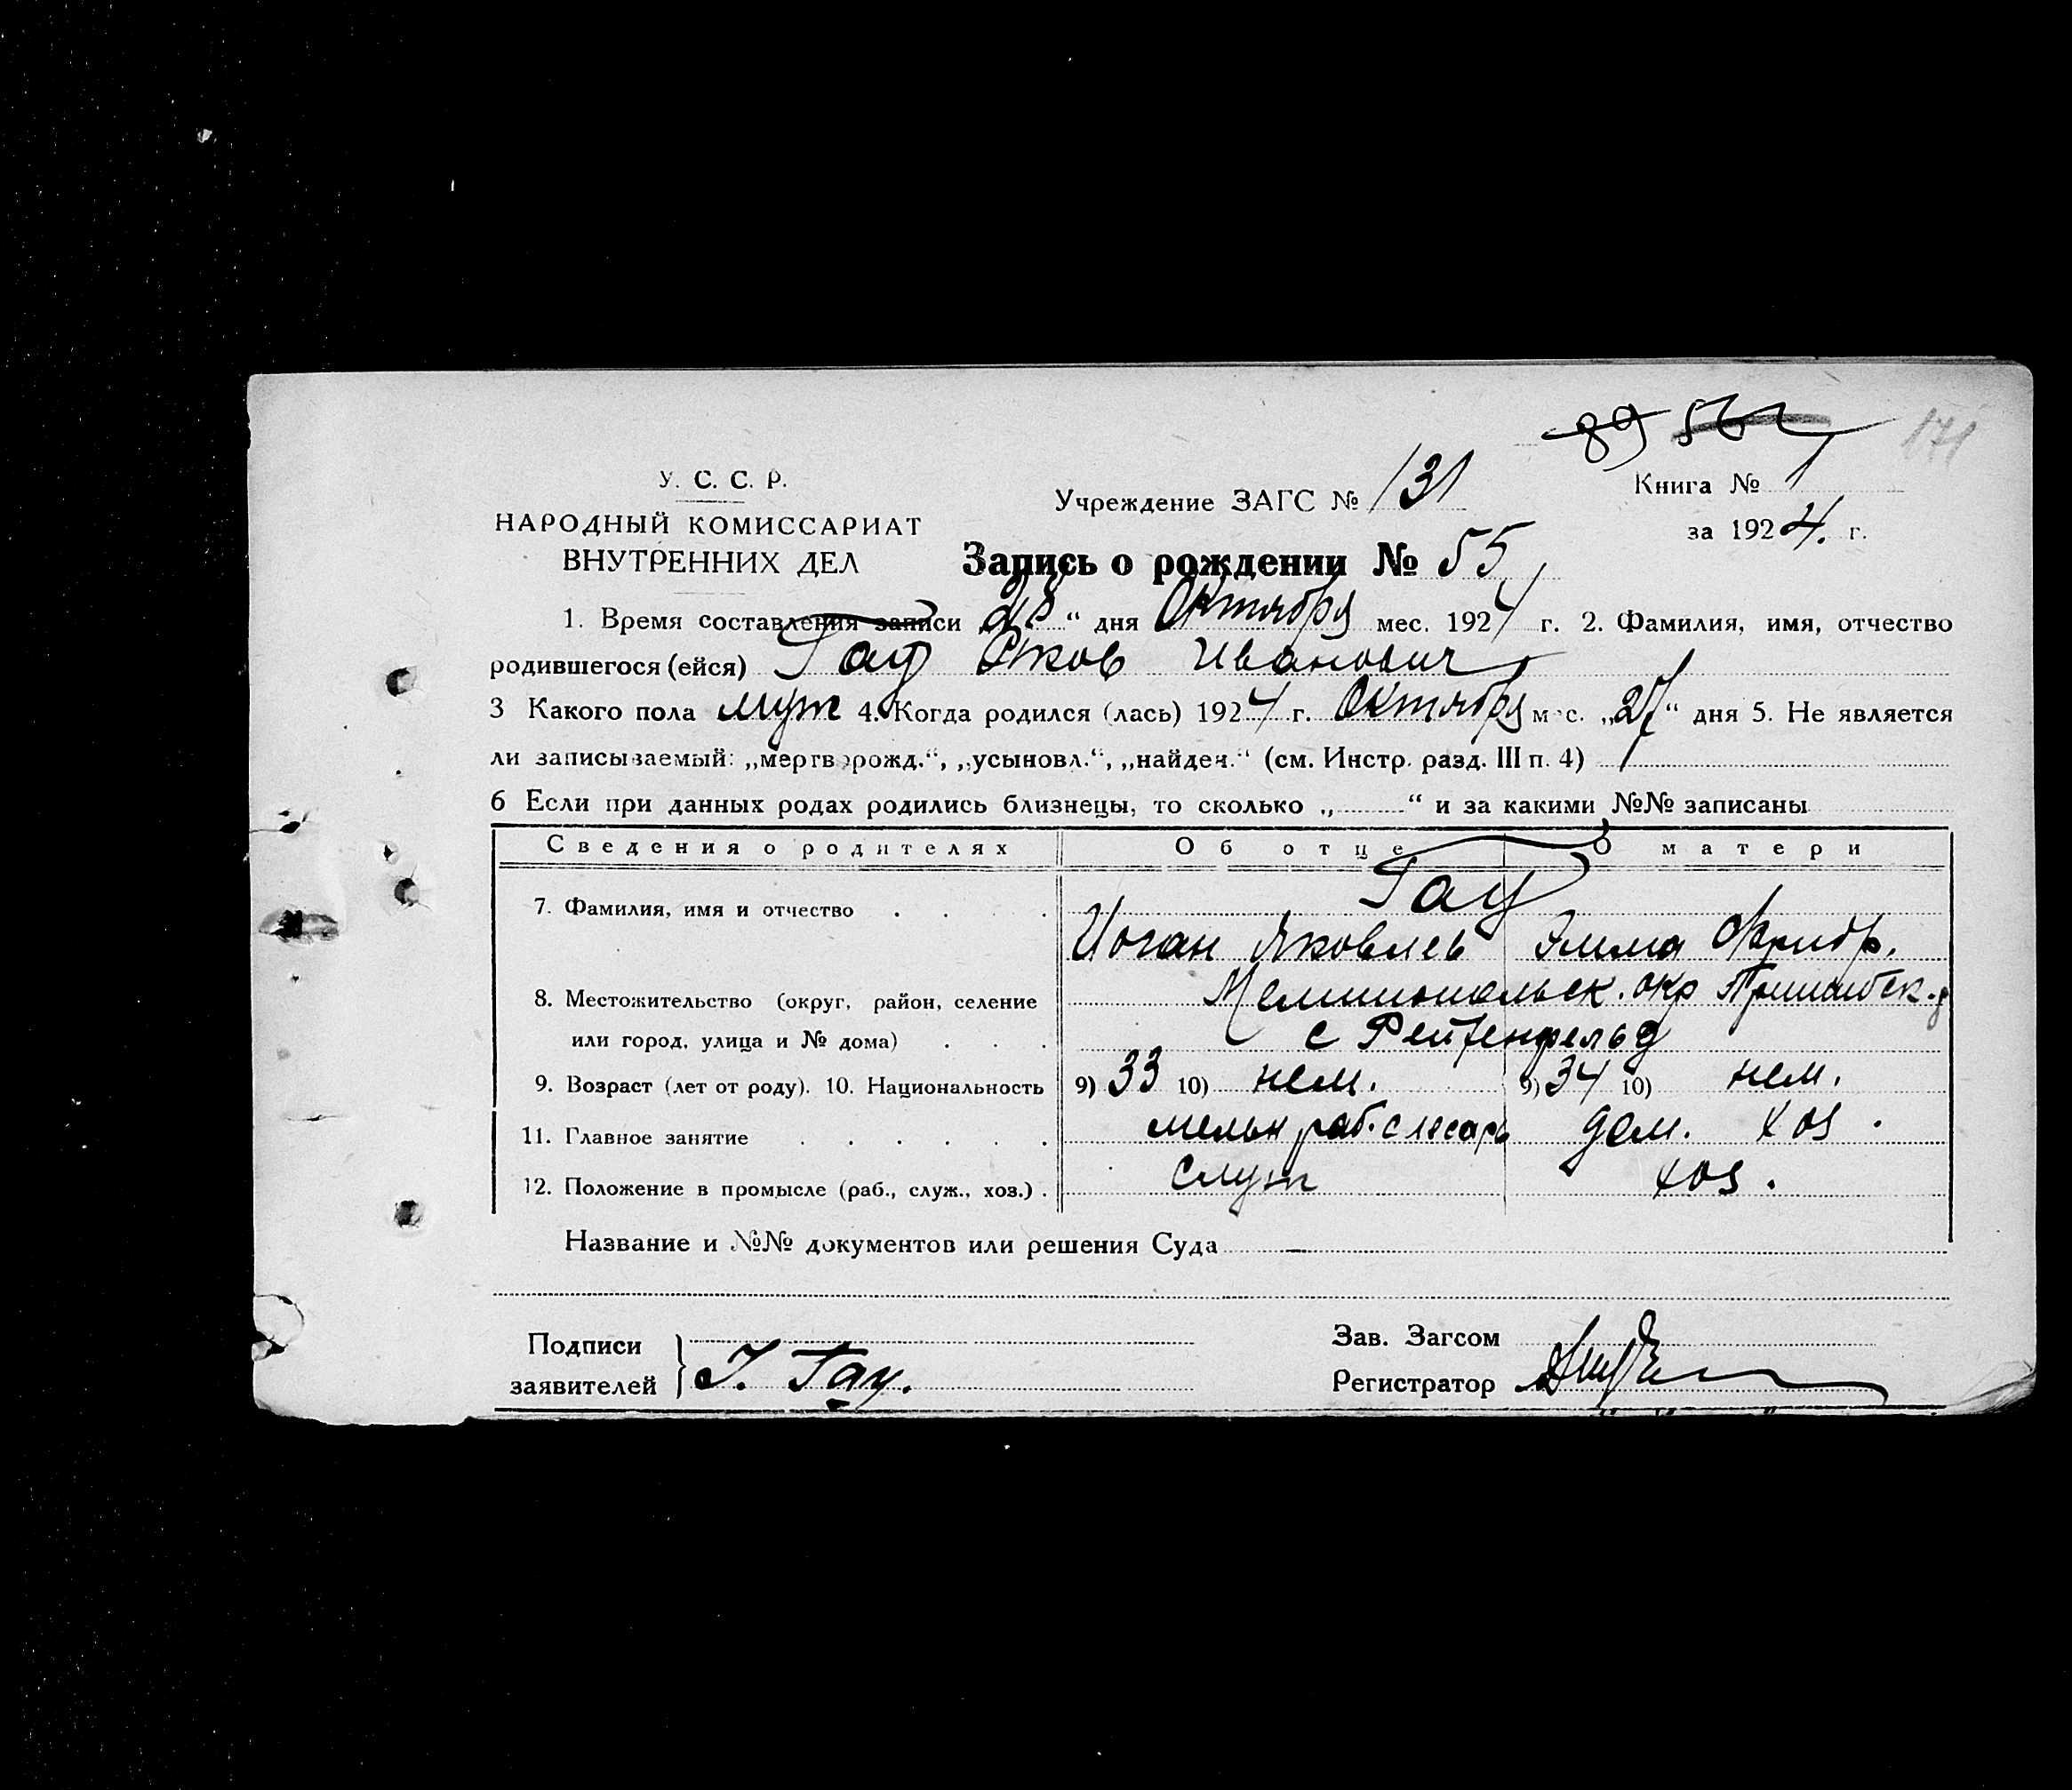 89 56
171
У. С. С. Р.
НАРОДНЫЙ КОМИССАРИАТ
ВНУТРЕННИХ ДЕЛ
Учреждение ЗАГС № 131
Книга № 1
за 1924. г.
Запись о рождении № 55
1. Время составления записи 28 “ дня Октября мес. 1924 г. 2. Фамилия, имя, отчество
родившегося (ейся) Гау Яков Иванович
3 Какого пола муж 4. Когда родился (лась) 1924 г. Октября мес. „27“ дня 5. Не является
ли записываемый: „мертворожд.“, „усыновл.“, „найден.“ (см. Инстр. разд. III п. 4)
6 Если при данных родах родились близнецы, то сколько „ “ и за какими №№ записаны
Сведения о родителях Об отце О матери
7. Фамилия, имя и отчество Гау
Иоган Яковлев Эмма Фридр.
8. Местожительство (округ, район, селение Мелитопольск. окр Пришибск. р
или город, улица и № дома) с Рейхенфельд
9. Возраст (лет от роду). 10. Национальность 9) 33 10) нем. 9) 34 10) нем.
11. Главное занятие мельн раб. слесарь дом. хоз.
12. Положение в промысле (раб., служ., хоз.) служ хоз.
Название и №№ документов или решения Суда —
Подписи
заявителей } И. Гау.
Зав. Загсом
Регистратор